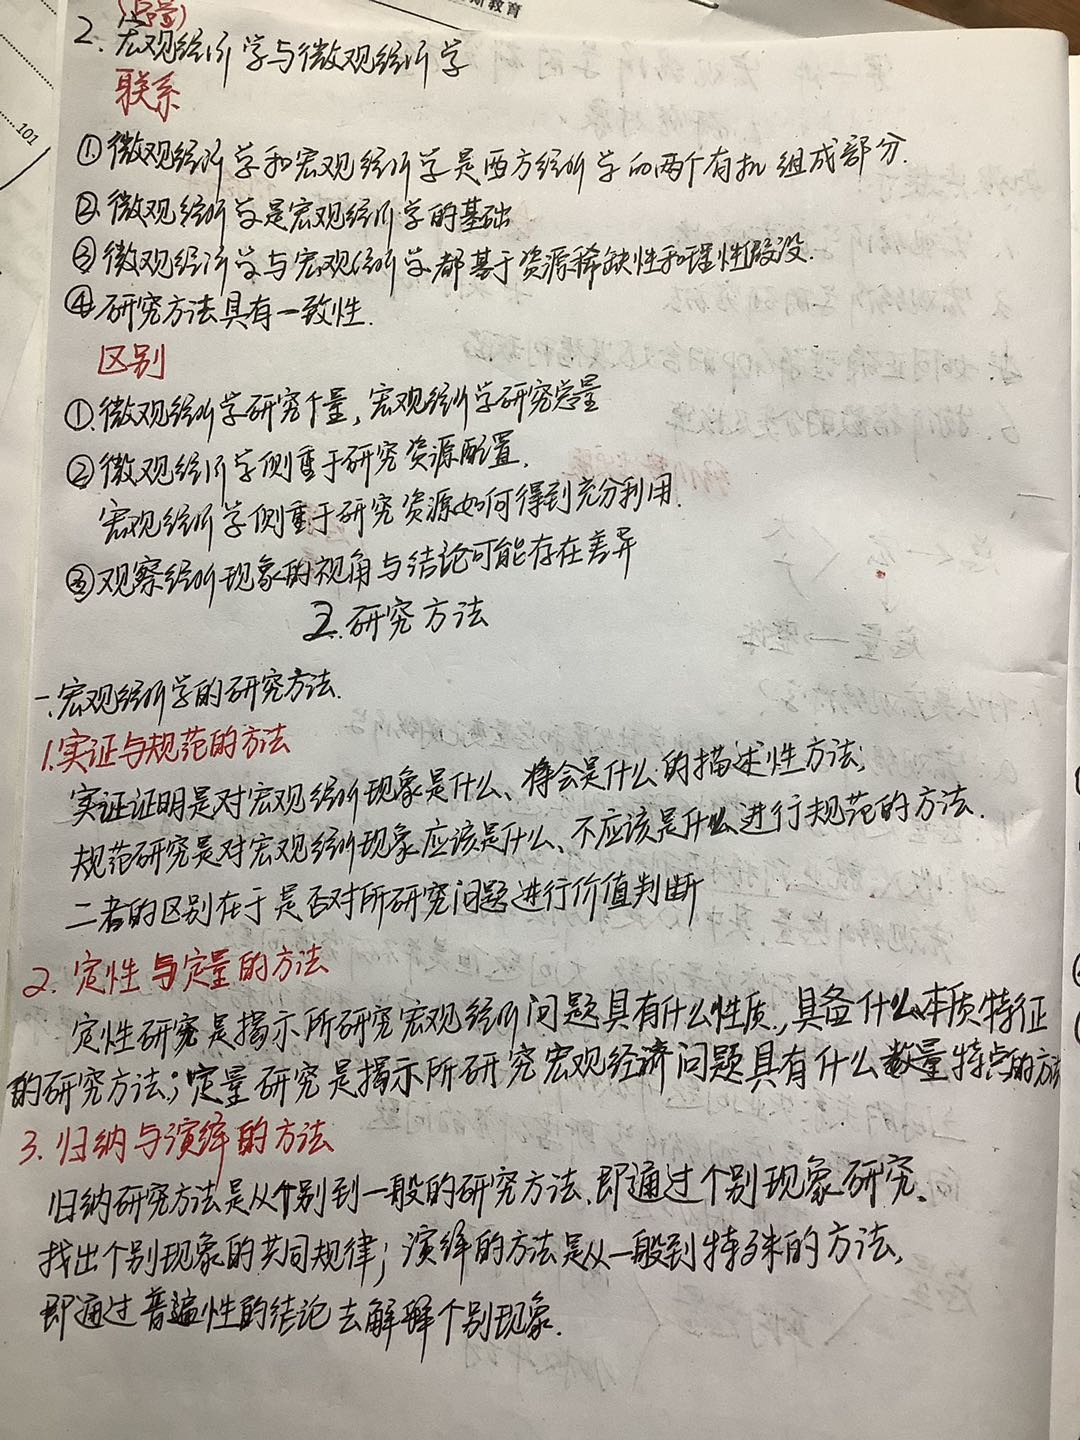 斯教育
101
(总量)
2. 宏观经济学与微观经济学
联系
①微观经济学和宏观经济学是西方经济学的两个有机组成部分.
②微观经济学是宏观经济学的基础
③微观经济学与宏观经济学都基于资源稀缺性和理性假设.
④研究方法具有一致性.
区别
①微观经济学研究个量,宏观经济学研究总量
②微观经济学侧重于研究资源配置.
宏观经济学侧重于研究资源如何得到充分利用.
③观察经济现象的视角与结论可能存在差异
2.研究方法
一.宏观经济学的研究方法.
1.实证与规范的方法
实证证明是对宏观经济现象是什么、将会是什么的描述性方法;
规范研究是对宏观经济现象应该是什么、不应该是什么进行规范的方法.
二者的区别在于是否对所研究问题进行价值判断
2. 定性与定量的方法
定性研究是揭示所研究宏观经济问题具有什么性质.,具备什么本质特征
的研究方法;定量研究是揭示所研究宏观经济问题具有什么数量特点的方法
3. 归纳与演绎的方法
归纳研究方法是从个别到一般的研究方法.即通过个别现象研究.
找出个别现象的共同规律;演绎的方法是从一般到特殊的方法,
即通过普遍性的结论去解释个别现象.